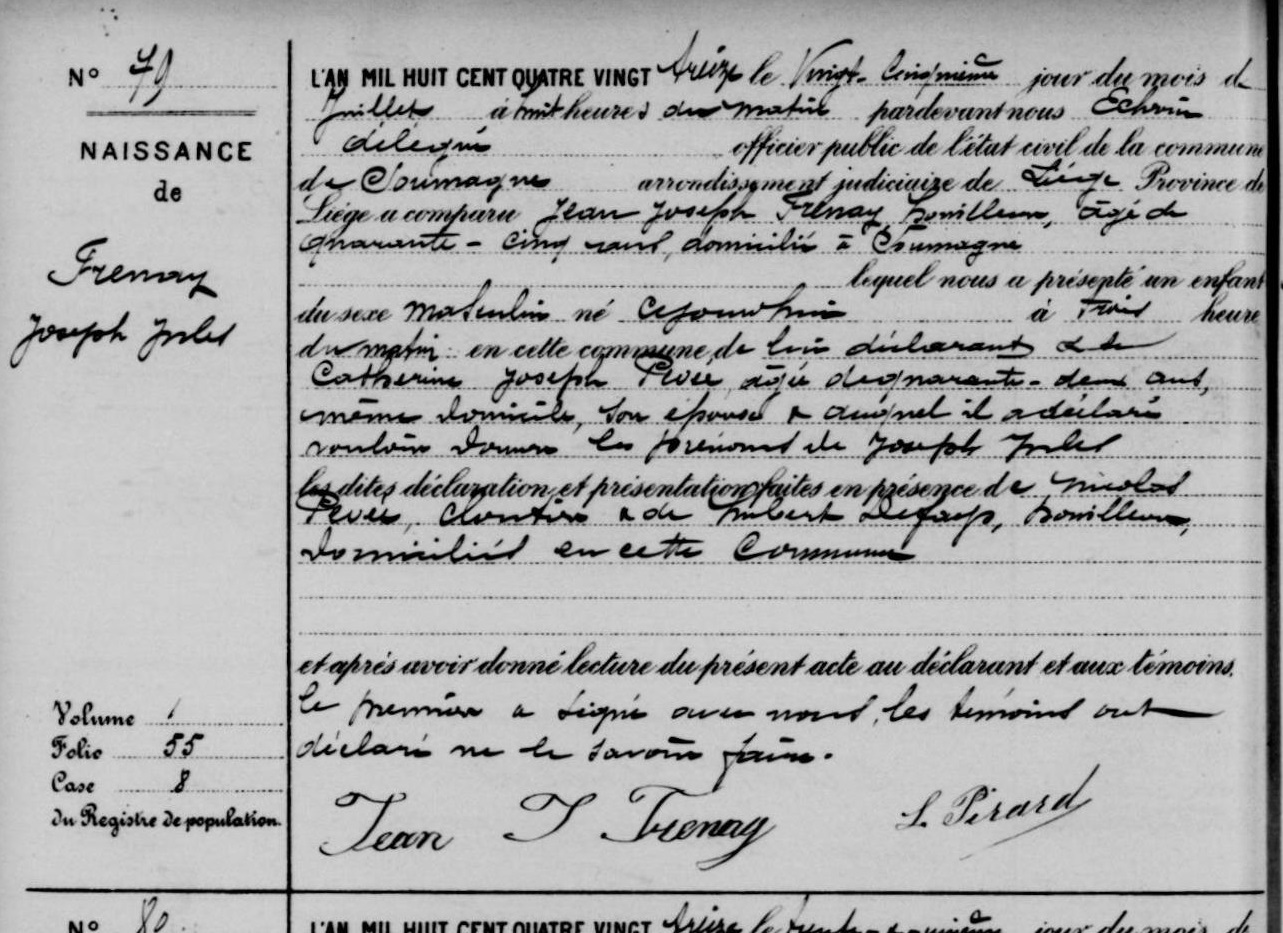 N° 79
NAISSANCE
de
Frenay
Joseph Jules
L'AN MIL HUIT CENT QUATRE VINGT treize le Vingt-Cinquième jour du mois de
Juillet à huit heures du matin pardevant nous Echevin
délégué officier public de l'état civil de la commune
de Soumagne arrondissement judiciaire de Liége Province de
Liége a comparu Jean Joseph Frenay, houilleur, âgé de
quarante-cinq ans, domicilié à Soumagne
lequel nous a présenté un enfant
du sexe Masculin né cejourd'hui à trois heure
du matin en cette commune, de lui déclarant & de
Catherine Joseph Pevée, âgée de quarante-deux ans,
même domicile, son épouse & auquel il a déclaré
vouloir donner les prénoms de Joseph Jules
les dites déclaration et présentation faites en présence de Nicolas
Pevée, cloutier & de Hubert Defays, houilleur,
domiciliés en cette Commune
et aprés avoir donné lecture du présent acte au déclarant et aux témoins.
le premier a signé avec nous, les témoins ont
déclaré ne le savoir faire.
Volume 1
Folio 55
Case 8
du Registre de population.
Jean J Frenay L. Pirard
N° 80
L'AN MIL HUIT CENT QUATRE VINGT treize le jour du mois de